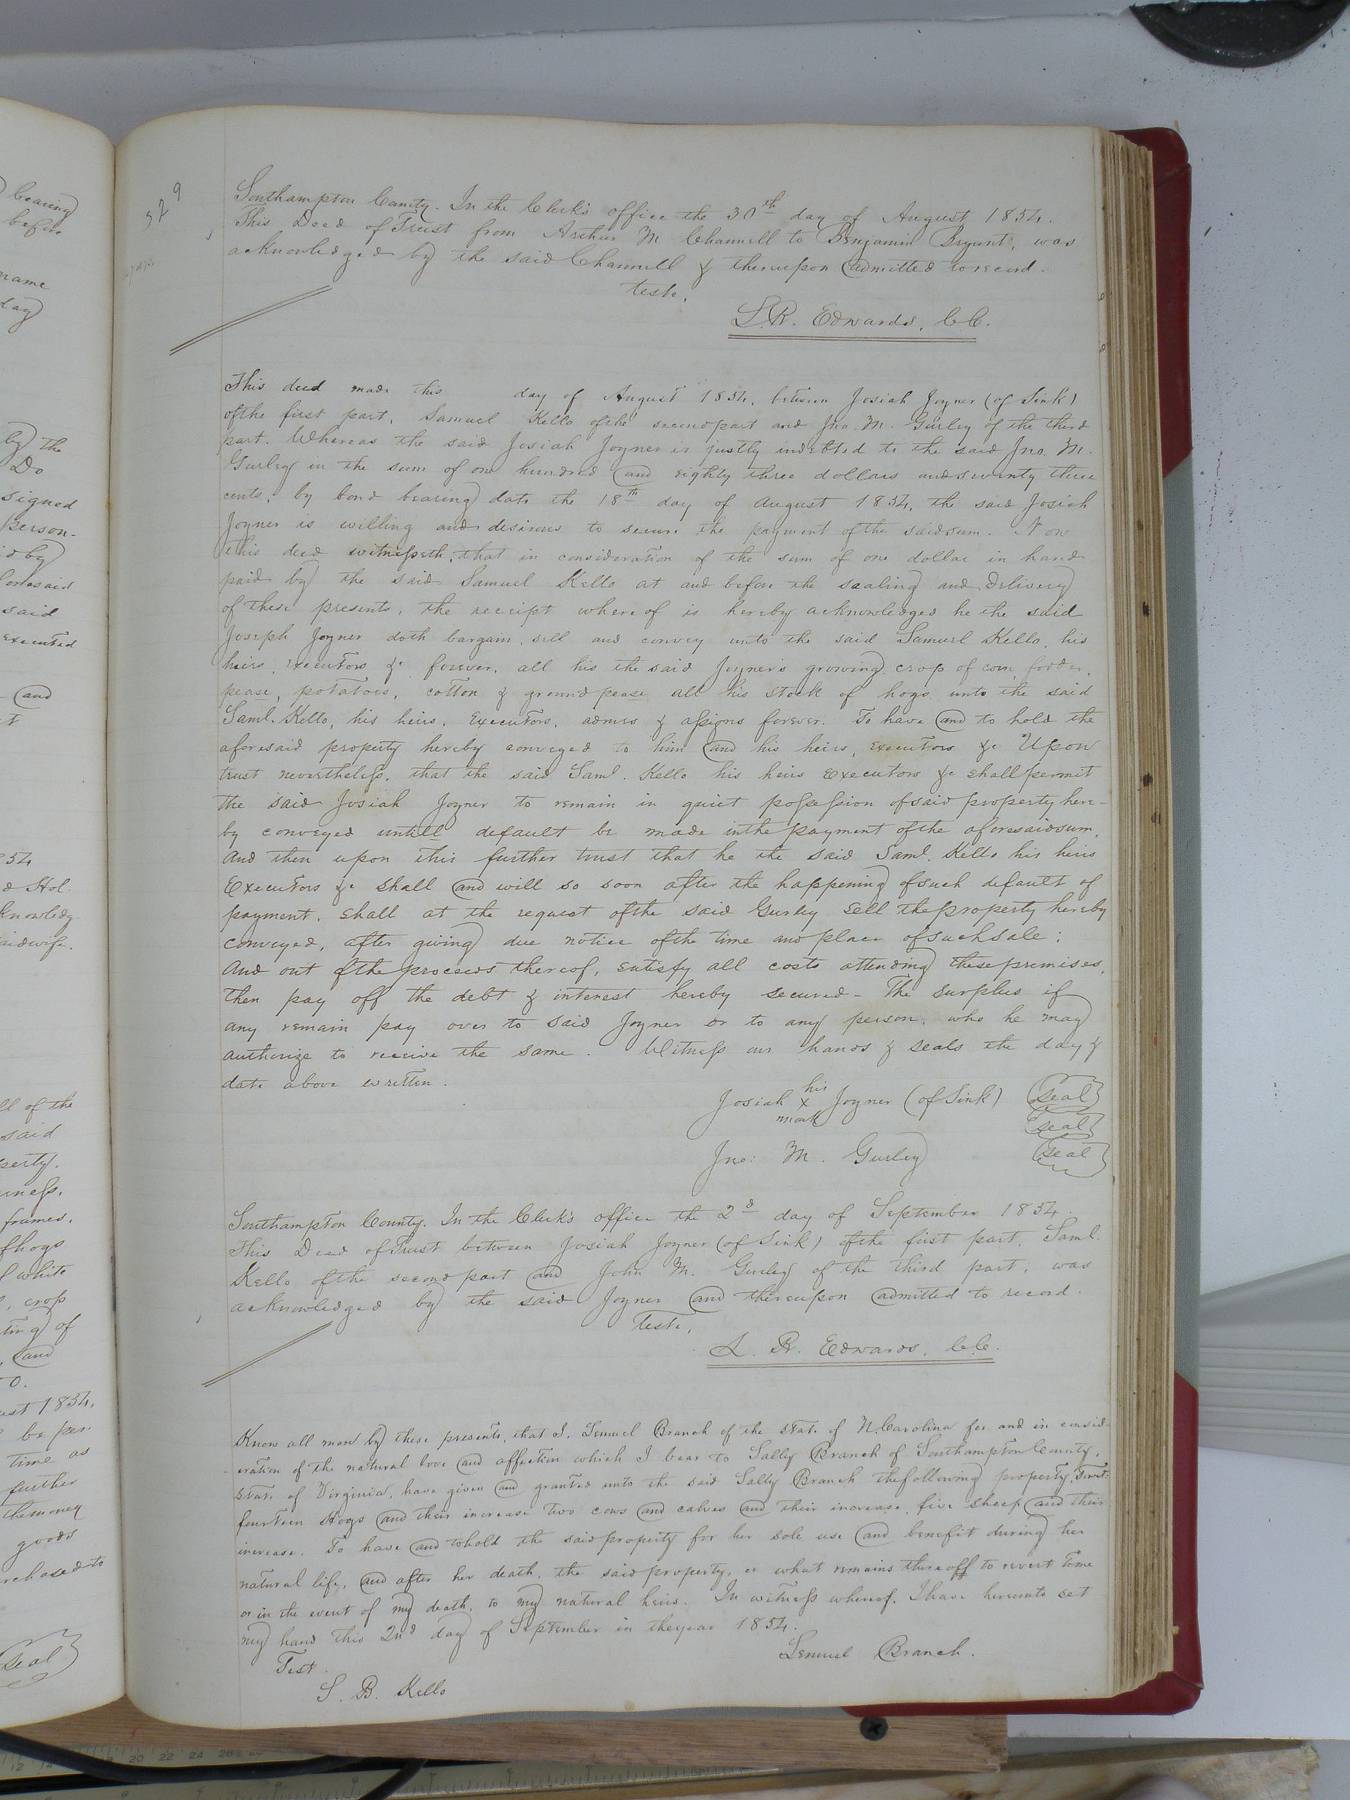 329
Southampton County. In the Clerk's office the 30th day of August 1854.
This Deed of Trust from Arthur M Channell to Benjamin Bryant, was
acknowledged by the said Channell & thereupon admitted to record.
Teste,
L.R. Edwards, C.C.
This deed made this day of August 1854, between Josiah Joyner (of Sink)
of the first part, Samuel Kello of the second part and Jno. M. Gurley of the third
part. Whereas the said Josiah Joyner is justly indebted to the said Jno. M.
Gurley in the sum of one hundred and eighty three dollars and seventy three
cents, by bond bearing date the 18th day of August 1854, the said Josiah
Joyner is willing and desirous to secure the payment of the said sum. Now
this deed witnesseth, that in consideration of the sum of one dollar in hand
paid by the said Samuel Kello at and before the sealing and delivery
of these presents, the receipt whereof is hereby acknowledged he the said
Joseph Joyner doth bargain, sell and convey unto the said Samuel Kello, his
heirs, executors &c forever, all his the said Joyner's growing crop of corn, fodder,
pease, potatoes, cotton & ground pease all his stock of hogs unto the said
Saml. Kello, his heirs, Executors, admrs & assigns forever. To have and to hold the
aforesaid property hereby conveyed to him and his heirs, executors &c Upon
trust nevertheless, that the said Saml. Kello his heirs Executors &c shall permit
the said Josiah Joyner to remain in quiet possession of said property here-
by conveyed untill default be made in the payment of the aforesaid sum,
And then upon this further trust that he the said Saml. Kello his heirs
Executors &c shall and will so soon after the happening of such default of
payment, shall at the request of the said Gurley sell the property hereby
conveyed, after giving due notice of the time and place of such sale;
And out of the proceeds thereof, satisfy all costs attending these premises,
then pay off the debt & interest hereby secured - The surplus if
any remain pay over to said Joyner or to any person, who he may
authorize to receive the same. Witness our hands & seals the day &
date above written.
Josiah his x mark Joyner (of Sink) Seal
Seal
Jno: M. Gurley Seal
Southampton County. In the Clerk's office the 2d day of September 1854.
This Deed of Trust between Josiah Joyner (of Sink) of the first part, Saml.
Kello of the second part and John M. Gurley of the third part, was
acknowledged by the said Joyner and thereupon admitted to record.
Teste,
L. R. Edwards, C.C.
Know all men by these presents, that I, Lemuel Branch of the state of N. Carolina for and in consid-
eration of the natural love and affection which I bear to Sally Branch of Southampton County,
State of Virginia, have given and granted unto the said Sally Branch the following property, Towit:
fourteen Hogs and their increase two cows and calves and their increase, five sheep and their
increase. To have and to hold the said property for her sole use and benefit during her
natural life, and after her death, the said property, or what remains thereoff to revert to me
or in the event of my death, to my natural heirs. In witness whereof, I have hereunto set
my hand this 2nd day of September in the year 1854.
Lemuel Branch.
Test.
S. B. Kello